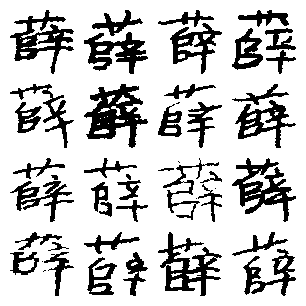 薛薛薛薛
薛薛薛薛
薛薛薛薛
薛薛薛薛